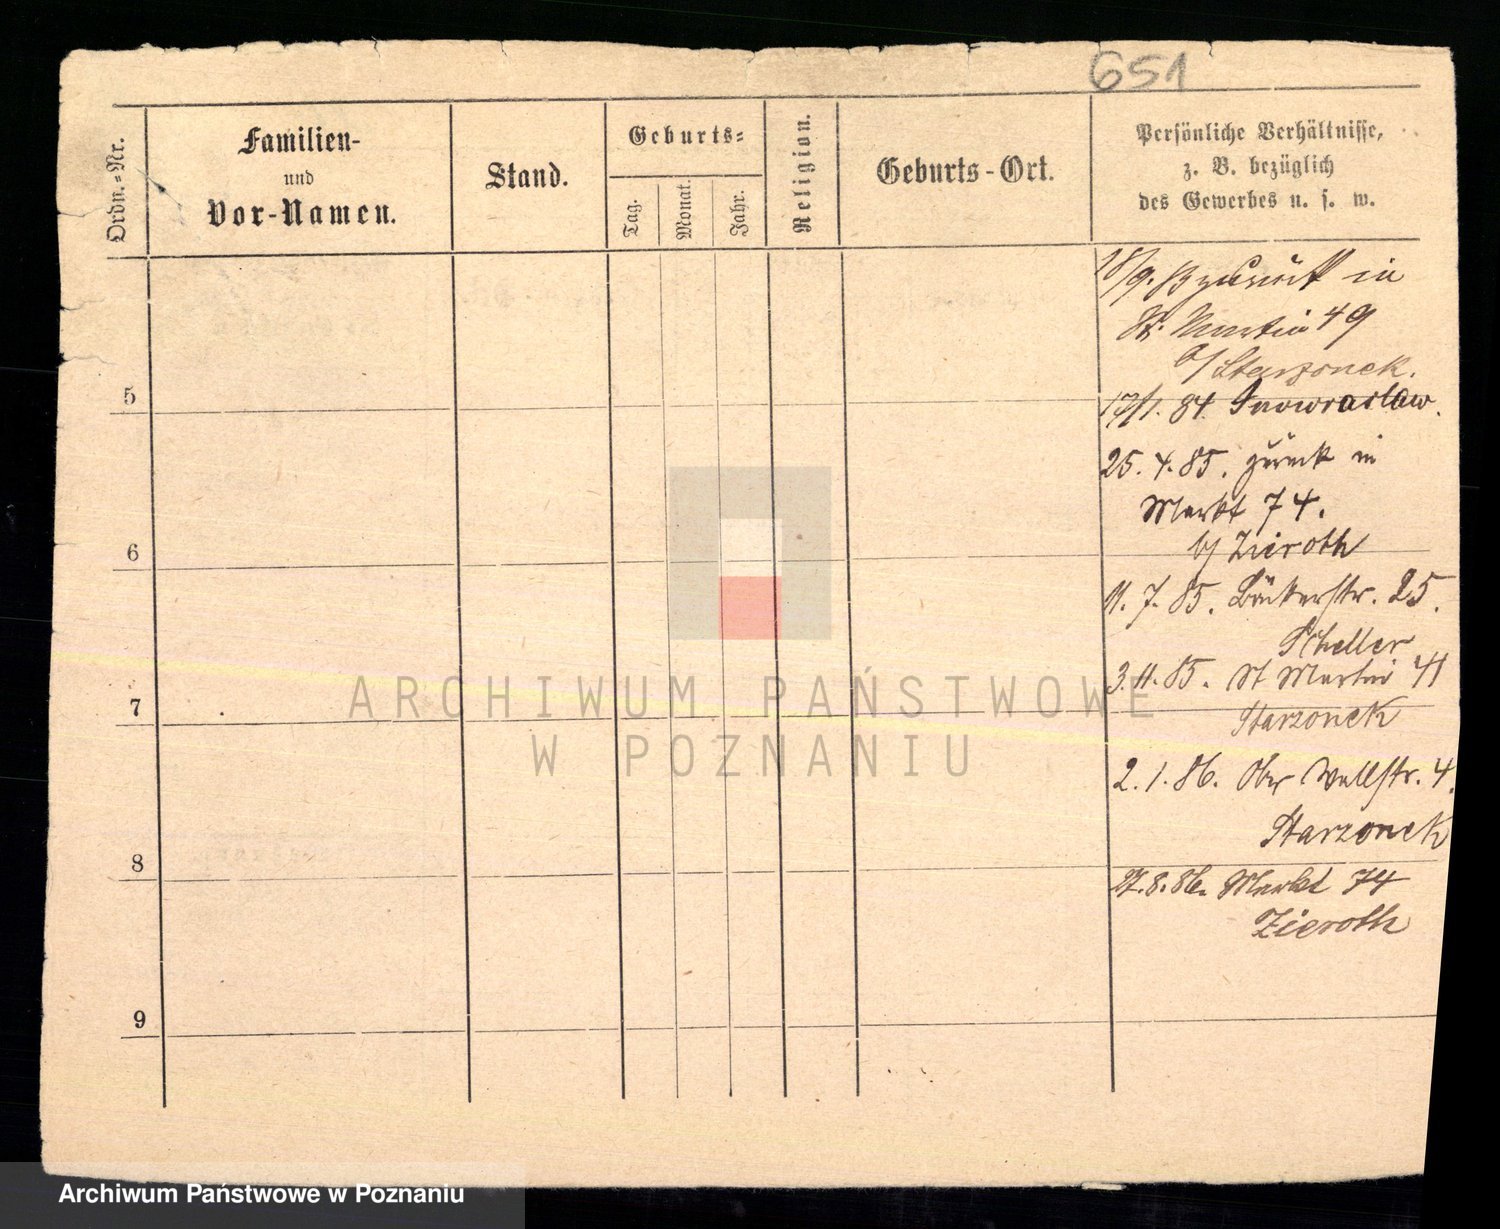 651
Ordn.-Nr.
Familien-
und
Vor-Namen.
Stand.
Geburts-
Tag.
Monat.
Jahr.
Religion.
Geburts-Ort.
Persönliche Verhältnisse,
z. B. bezüglich
des Gewerbes u. s. w.
18/9. 83 zurück in
St. Martin 49
b/ Starzonek.
5
17/1. 84. Inowraclaw.
25. 4. 85. zurück in
Markt 74.
b/ Zieroth
6
11. 7. 85. Bäckerstr. 25.
Scheller
3. 11. 85. St Martin 41
7
Starzonek
2. 1. 86. Ober Wallstr. 4.
Starzonek
8
27. 8. 86. Markt 74
Zieroth
9
ARCHIWUM PAŃSTWOWE
W POZNANIU
Archiwum Państwowe w Poznaniu